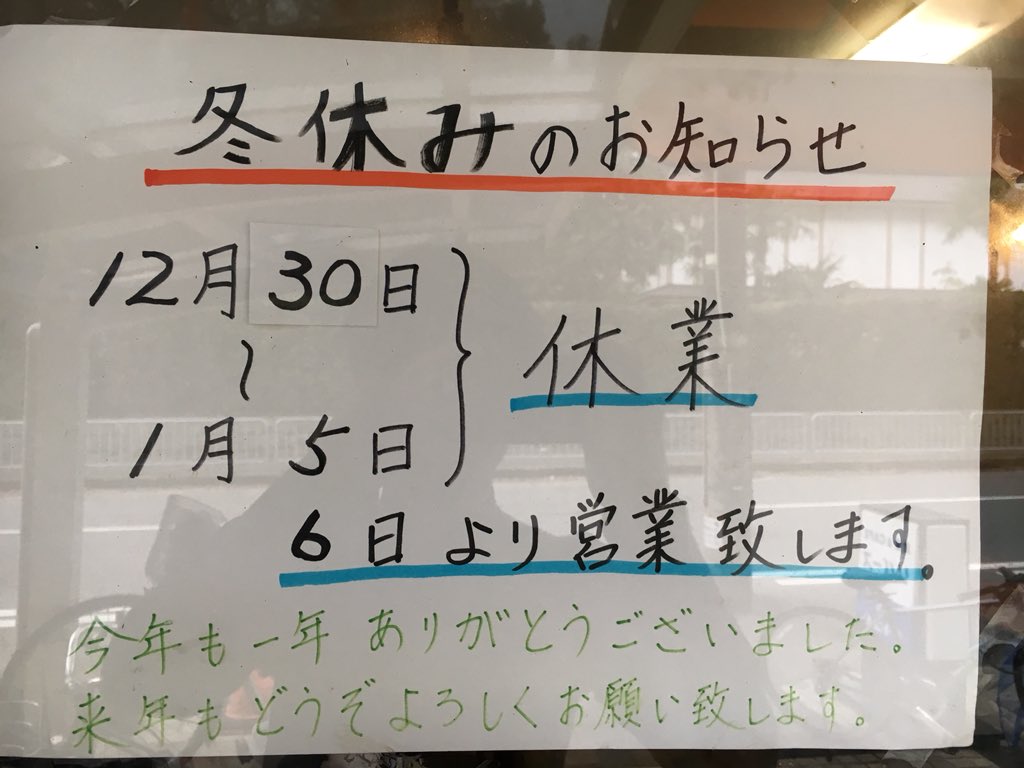 冬休みのお知らせ
12月30日
〜
1月5日
休業
6日より営業致します。
今年も一年ありがとうございました。
来年もどうぞよろしくお願い致します。